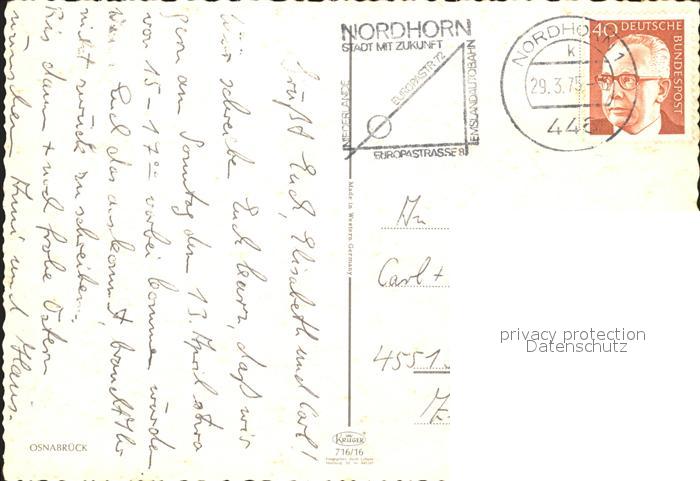 Grüßt Euch, Elisabeth und Carl!
Wir schreiben Euch kurz, daß wir
gern am Sonntag den 13. April etwa
von 15 - 17 00 vorbei kommen würden.
Wenn Euch das auskommt, braucht Ihr
nicht zurück zu schreiben.
Bis dann + noch frohe Ostern
wünschen und Hans.
OSNABRÜCK
Made in Western Germany
KRÜGER
716/16
NORDHORN
STADT MIT ZUKUNFT
NIEDERLANDE
EUROPASTR. 72
EMSLANDAUTOBAHN
EUROPASTRASSE 8
NORDHORN 1
k
29.3.75
446
40
DEUTSCHE
BUNDESPOST
An
Carl +
4551
privacy protection
Datenschutz